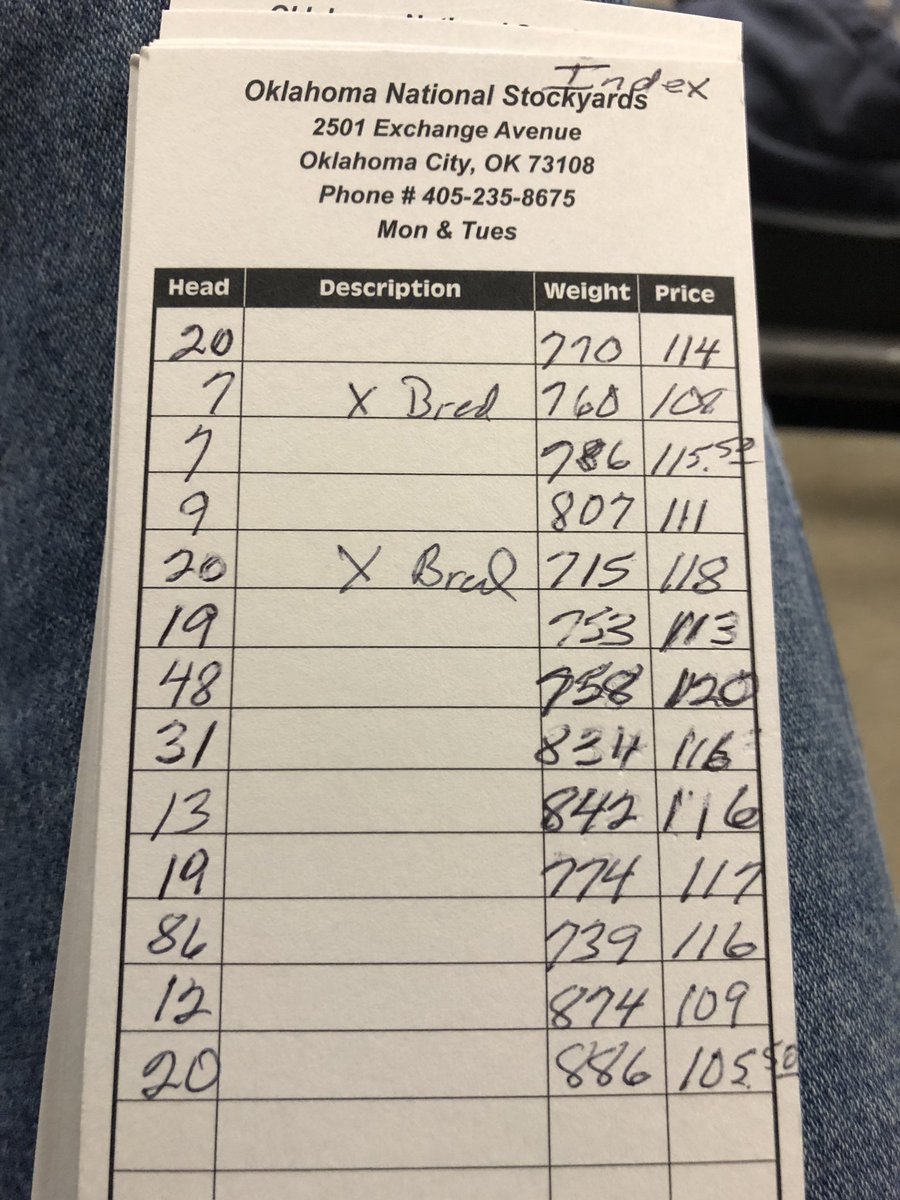 Index
Oklahoma National Stockyards
2501 Exchange Avenue
Oklahoma City, OK 73108
Phone # 405-235-8675
Mon & Tues
Head Description Weight Price
20 770 114
7 X Bred 760 108
7 786 115.50
9 807 111
20 X Bred 715 118
19 753 113
48 758 120
31 834 116
13 842 116
19 774 117
86 739 116
12 874 109
20 886 105.50